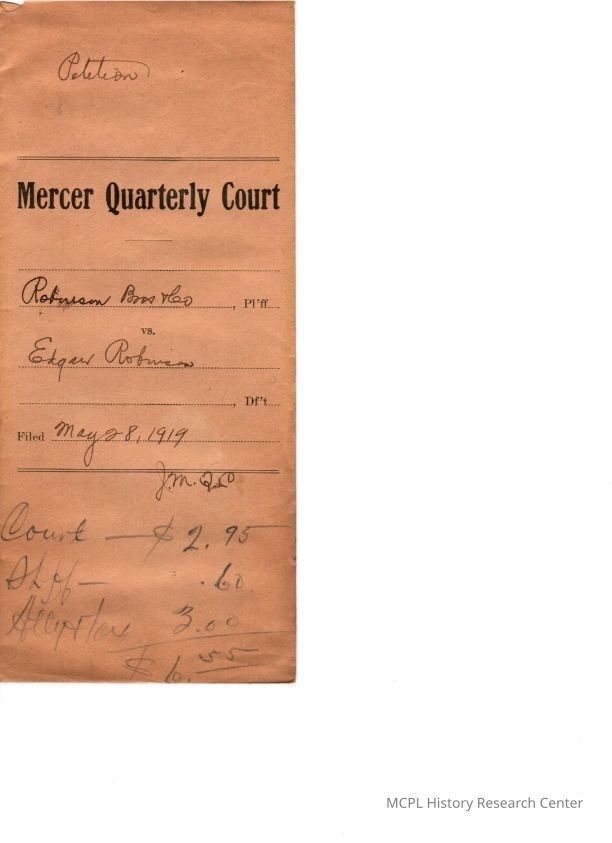 Petition
Mercer Quarterly Court
Robinson Bros & Co, Pl'ff
vs.
Edgar Robinson
, Df't
Filed May 28, 1919
J.M.
Court — $ 2.95
Shff — .60
Atty & tax 3.00
$ 6.55
MCPL History Research Center